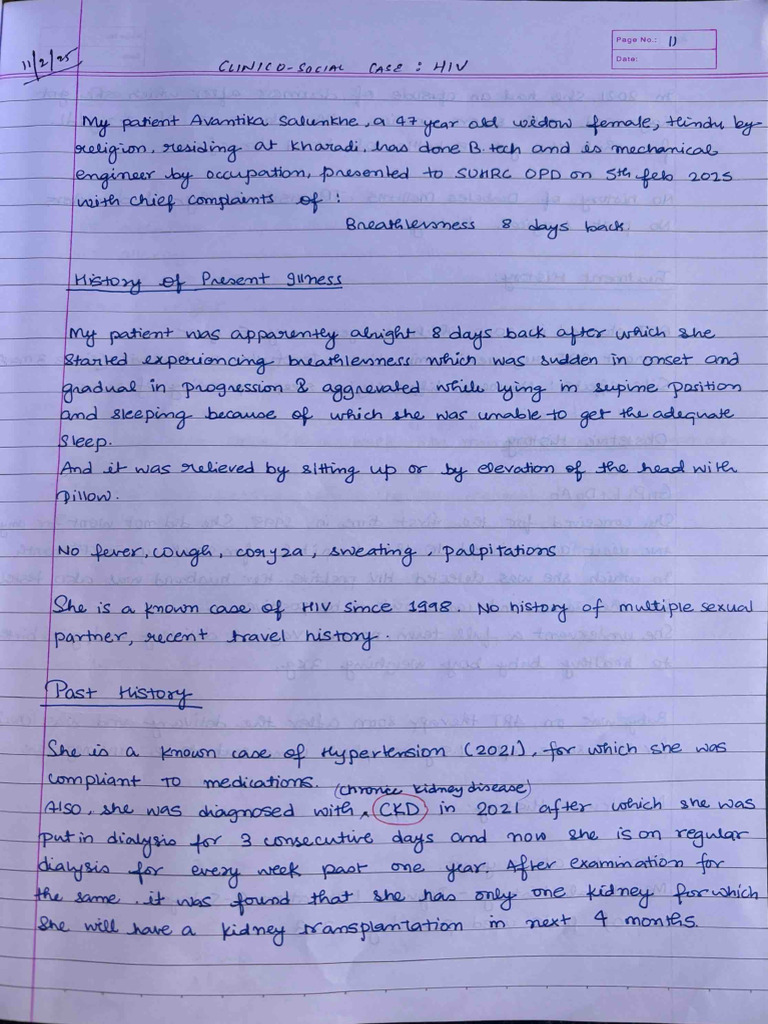 Page No.: 11
Date:
11/2/25
CLINICO-SOCIAL CASE: HIV
My patient Avantika Salunkhe, a 47 year old widow female, Hindu by
religion, residing at Kharadi, has done B.tech and is mechanical
engineer by occupation, presented to SUHRC OPD on 5th feb 2025
with chief complaints of :
Breathlessness 8 days back.
History of Present Illness
My patient was apparently alright 8 days back after which she
started experiencing breathlessness which was sudden in onset and
gradual in progression & aggrevated while lying in supine position
and sleeping because of which she was unable to get the adequate
sleep.
And it was relieved by sitting up or by elevation of the head with
pillow.
No fever, cough, coryza, sweating, palpitations
She is a known case of HIV since 1998. No history of multiple sexual
partner, recent travel history.
Past History
She is a known case of Hypertension (2021), for which she was
compliant to medications.
(chronic kidney disease)
Also, she was diagnosed with, CKD in 2021 after which she was
put in dialysis for 3 consecutive days and now she is on regular
dialysis for every week past one year. After examination for
the same, it was found that she has only one kidney for which
she will have a kidney transplantation in next 4 months.